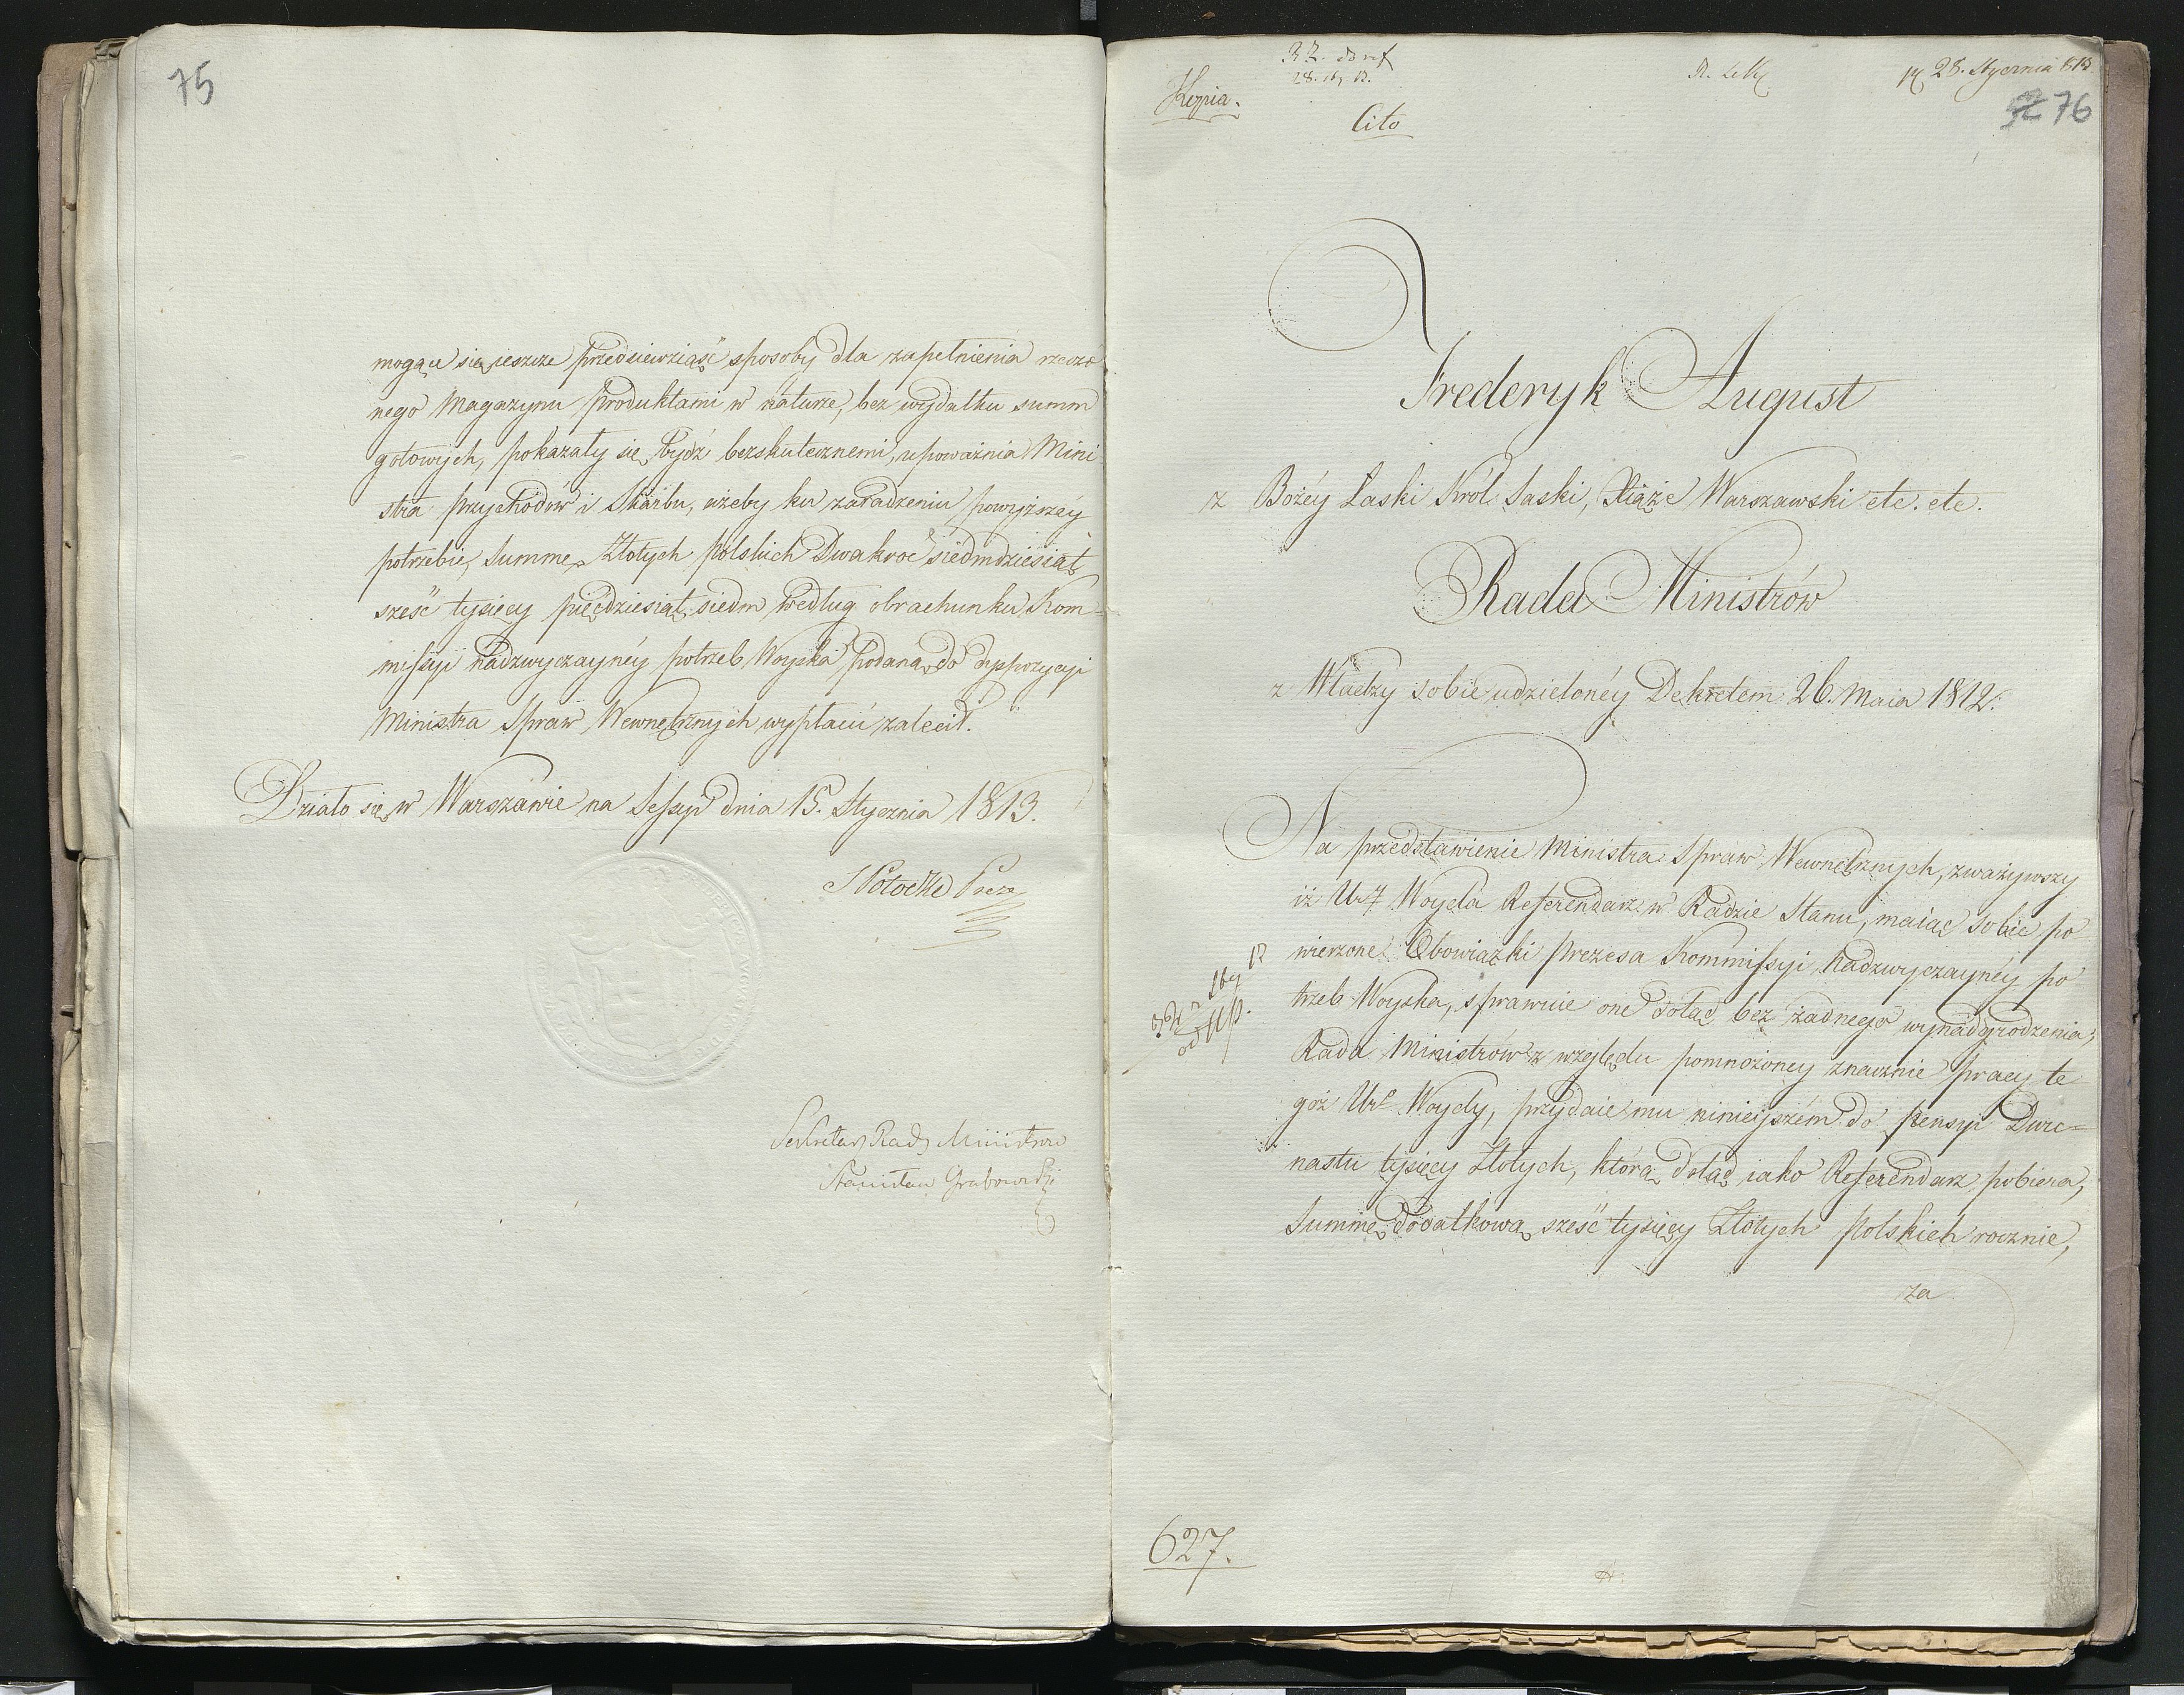 75
mogące się jeszcze przedsiewziąść sposoby dla zapełnienia rzeczo
nego Magazynu produktami w naturze, bez wydatku summ
gotowych, pokazały się bydź bezskutecznemi, upoważnia Mini
stra przychodów i Skarbu, ażeby ku zaradzeniu powyższéy
potrzebie, Summę Złotych polskich Dwakroć siedmdziesiąt
sześć tysięcy pięćdziesiąt siedm według obrachunku Kom-
missyi nadzwyczaynéy potrzeb Woyska podaną do dyspozycyi
Ministra Spraw Wewnętrznych wypłacić zalecił.
Działo się w Warszawie na Sessyi dnia 15. Stycznia 1813.
S Potocki Prez
Sekretarz Rady Ministrów
Stanisław Grabowski
28. Stycznia 813.
76
Kopia.
Cito
Frederyk August
z Bożéy Łaski Król Saski, Xiąże Warszawski etc. etc.
Rada Ministrów
z Władzy sobie udzielonéy Dekretem 26. Maia 1812.
Na przedstawienie Ministra Spraw Wewnętrznych, zważywszy
iż Ur. Woyda Referendarz w Radzie Stanu, maiąc sobie po
wierzone Obowiązki Prezesa Kommissyi Nadzwyczaynéy po
trzeb Woyska, sprawuie one dotąd bez żadnego wynadgrodzenia;
Rada Ministrów z względu pomnożoney znacznie pracy te
goż Ur. Woydy, przydaie mu ninieyszém do pensyi Dwu-
nastu tysięcy Złotych, którą dotąd iako Referendarz pobiera,
Summę dodatkową sześć tysięcy Złotych polskich rocznie,
za
627.